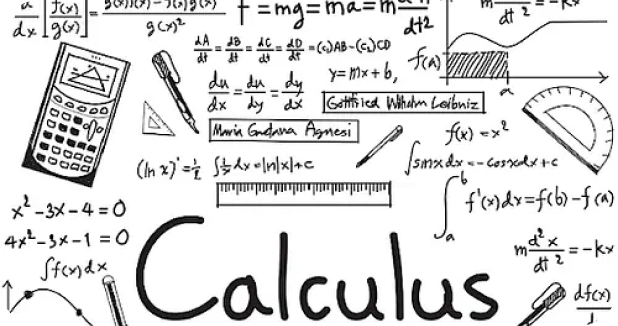 d/dx [f(x)/g(x)] = g(x)f'(x) - f(x)g'(x) / g(x)²
f = mg = ma = m
dt²
m dt² = -kx
dA/dt = dB/dt = dC/dt = dD/dt = (c₁)AB-(c₂)CD
f(a)
a
du/dx = du/dy dy/dx
y = mx + b,
Gottfried Wilhelm Leibniz
Maria Gaetana Agnesi
f(x) = x²
(ln x)' = 1/x
∫1/x dx = ln|x|+c
∫sinx dx = -cosx dx + c
x² - 3x - 4 = 0
∫ₐᵇ f'(x)dx = f(b) - f(a)
4x² - 3x - 1 = 0
m d²x/dt² = -kx
∫f(x)dx
Calculus
df(x)